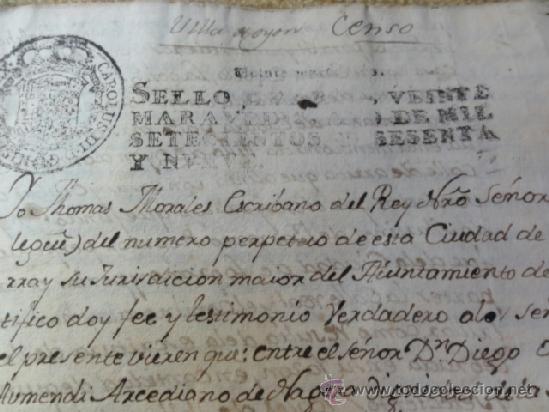 Villa Censo
CAROLUS III D G
Veinte maravedis.
SELLO , VEINTE
MARAVEDIS , DE MIL
SETECIENTOS SESENTA
Y NUEVE
Yo Thomas Morales Escribano del Rey Nrõ Señor
del numero perpetuo de esta Ciudad de
y su Jurisdicion maior del Aiuntamiento de
tifico doy fee y testimonio Verdadero a los señ
el presente vieren que entre el señor Dn. Diego
Arcediano de
todocoleccion
www.todocoleccion.net